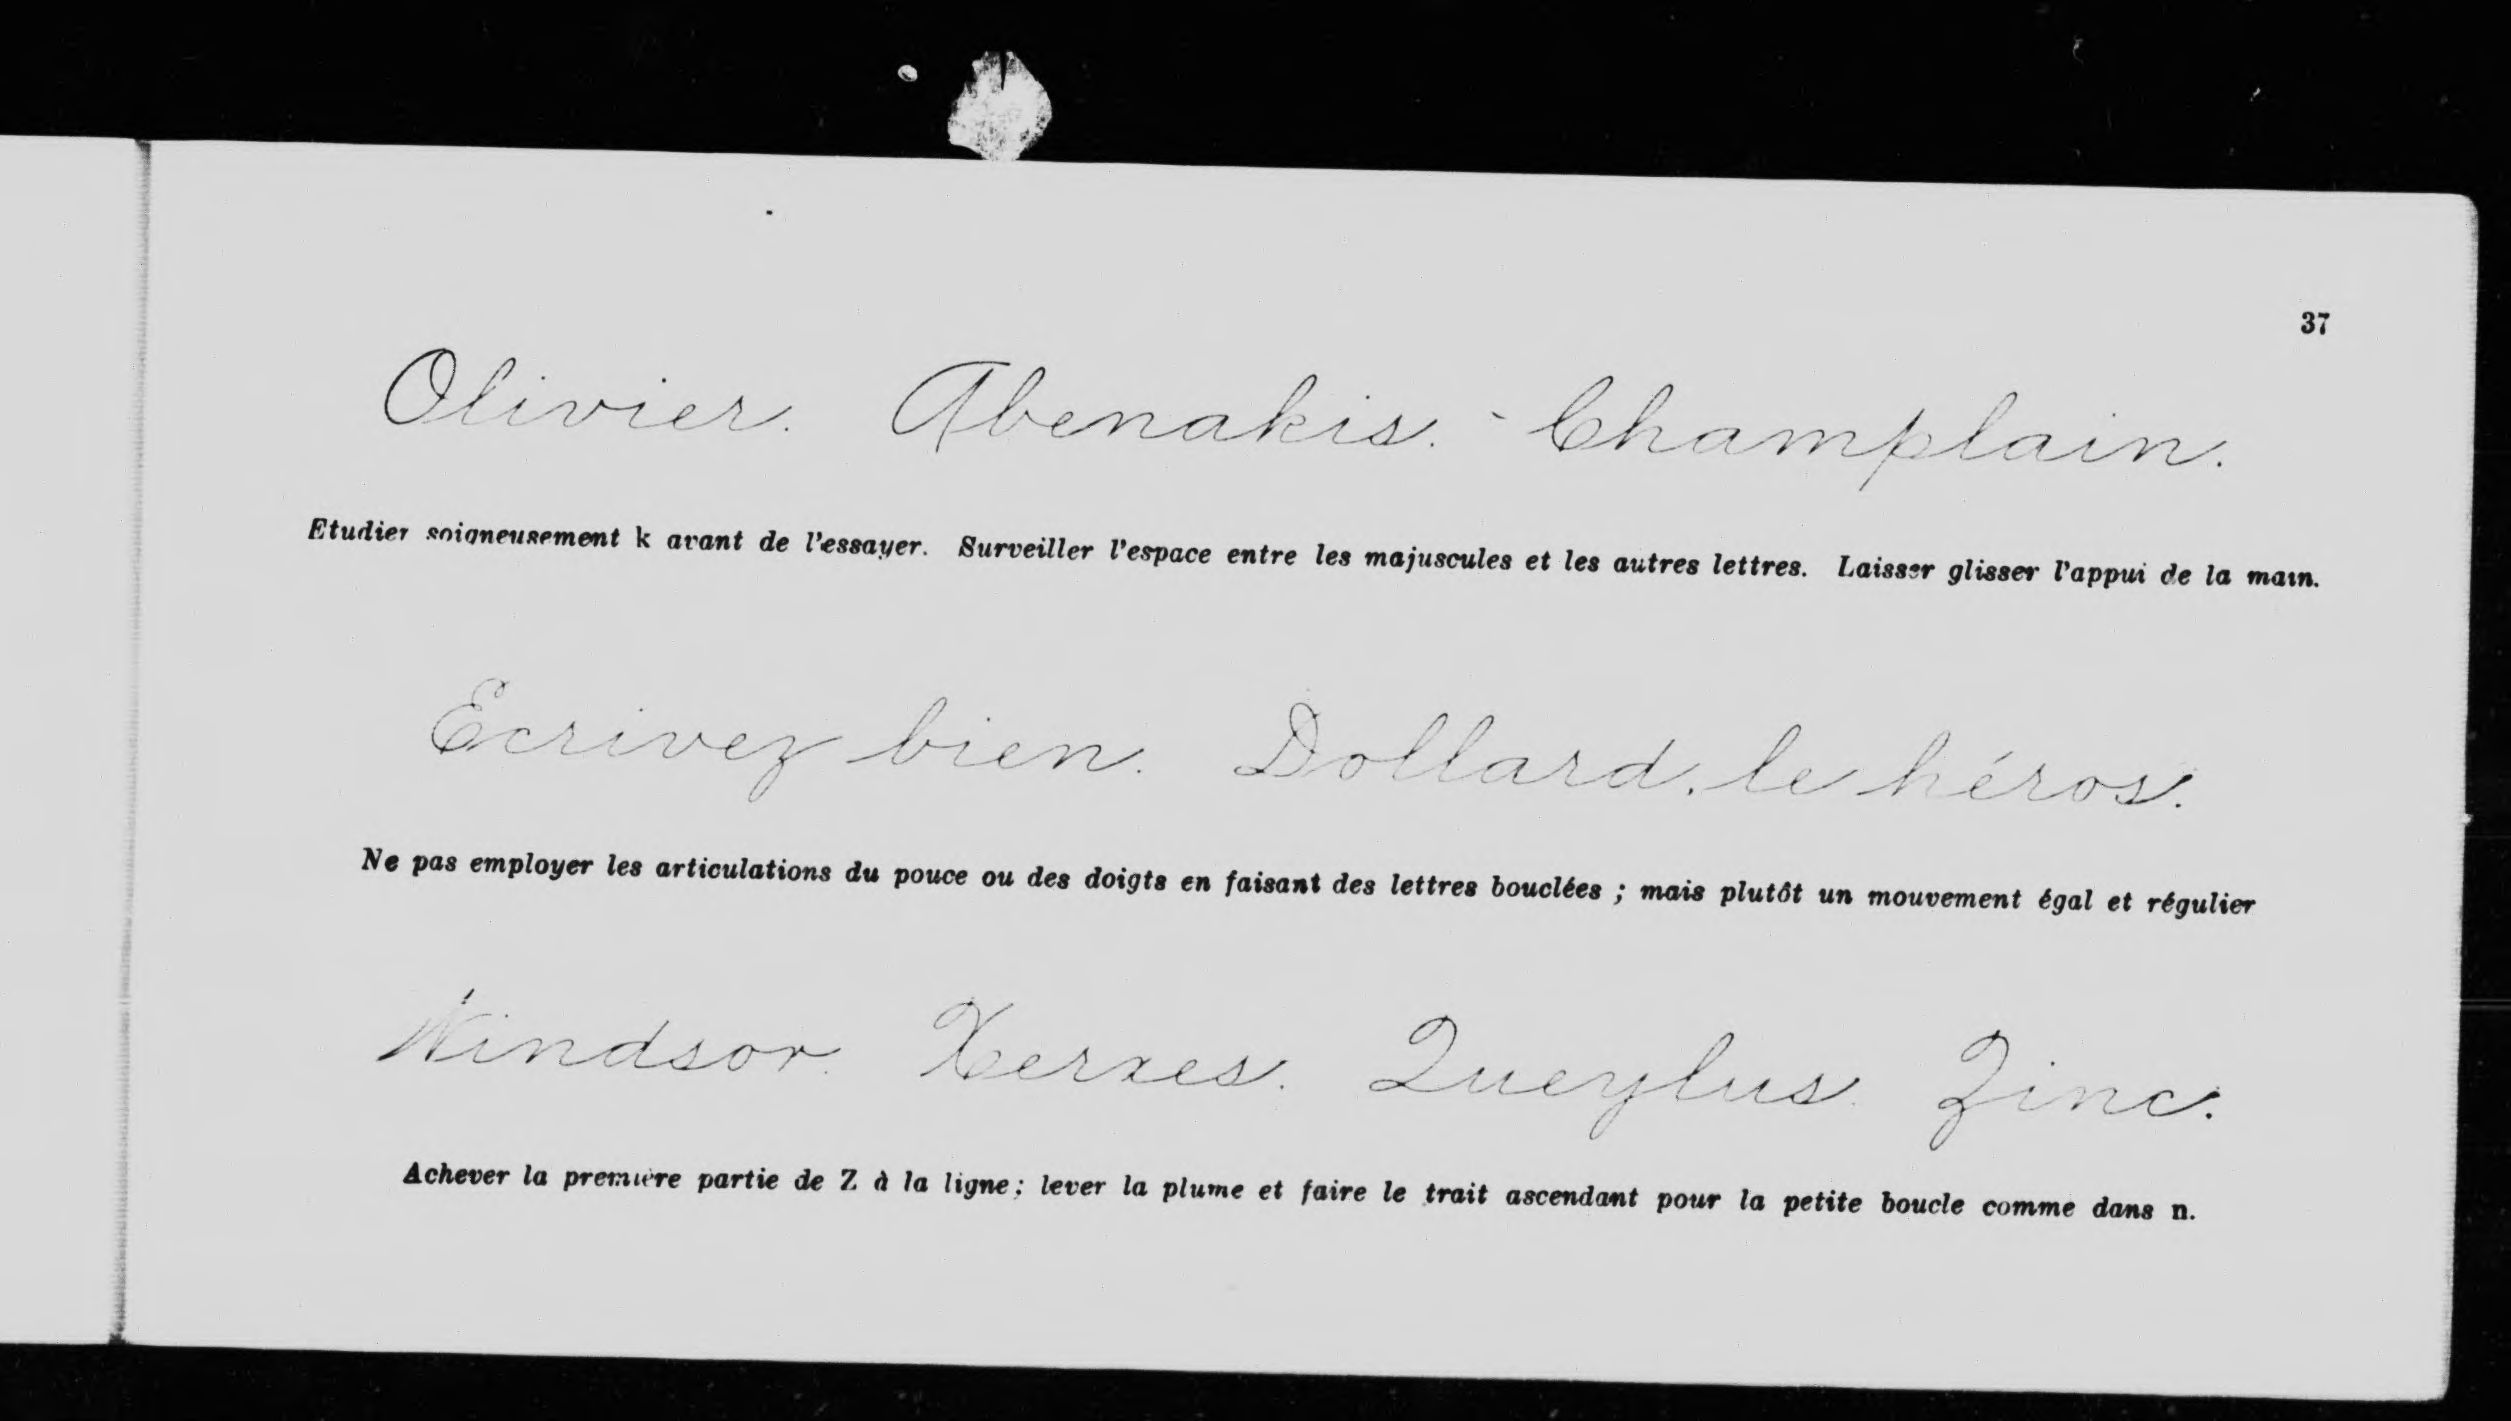 37
Olivier. Abenakis. Champlain.
Etudier soigneusement k avant de l'essayer. Surveiller l'espace entre les majuscules et les autres lettres. Laisser glisser l'appui de la main.
Ecrivez bien. Dollard, le héros.
Ne pas employer les articulations du pouce ou des doigts en faisant des lettres bouclées ; mais plutôt un mouvement égal et régulier
Windsor. Xerxes. Queylus. Zinc.
Achever la première partie de Z à la ligne; lever la plume et faire le trait ascendant pour la petite boucle comme dans n.